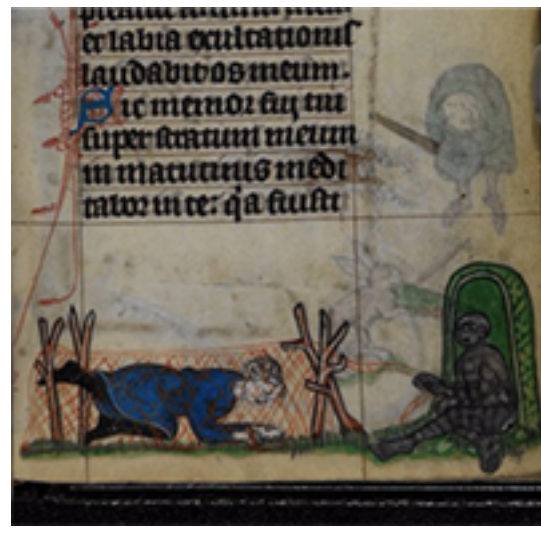 et labia exultationis
laudabit os meum.
Sic memor fui tui
super stratum meum
in matutinis medi
tabor in te: q̃a fuisti